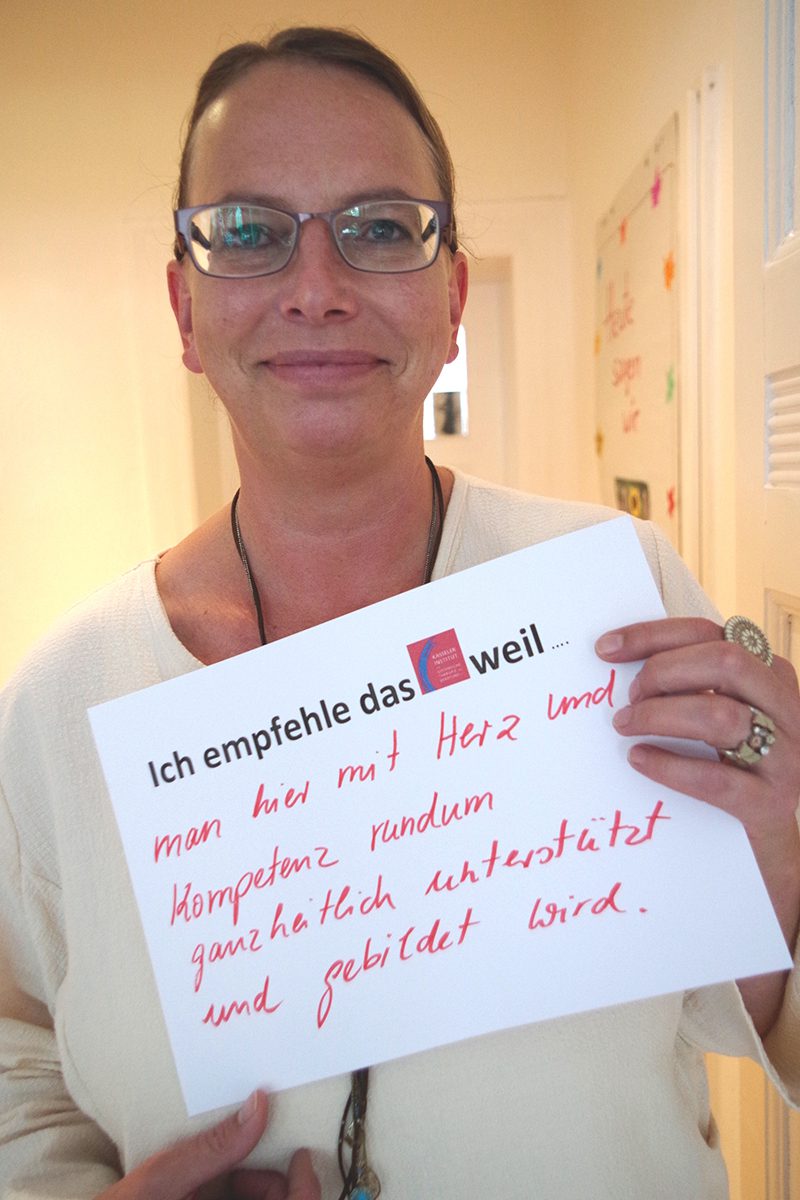 Heute
sagen
wir
Ich empfehle das KASSELER INSTITUT weil ....
man hier mit Herz und
Kompetenz rundum
ganzheitlich unterstützt
und gebildet wird.